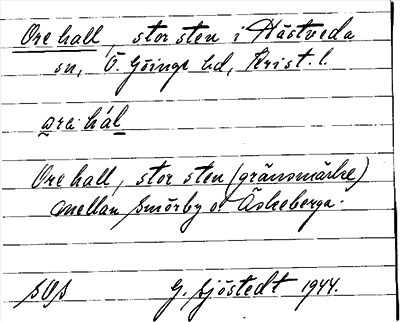 Ore hall, stor sten i Hästveda
sn, Ö. Göinge hd, Krist. l.
ɑre hál
Ore hall, stor sten (gränsmärke)
mellan Smörby o Äskeberga.
SOS G. Sjöstedt 1944.